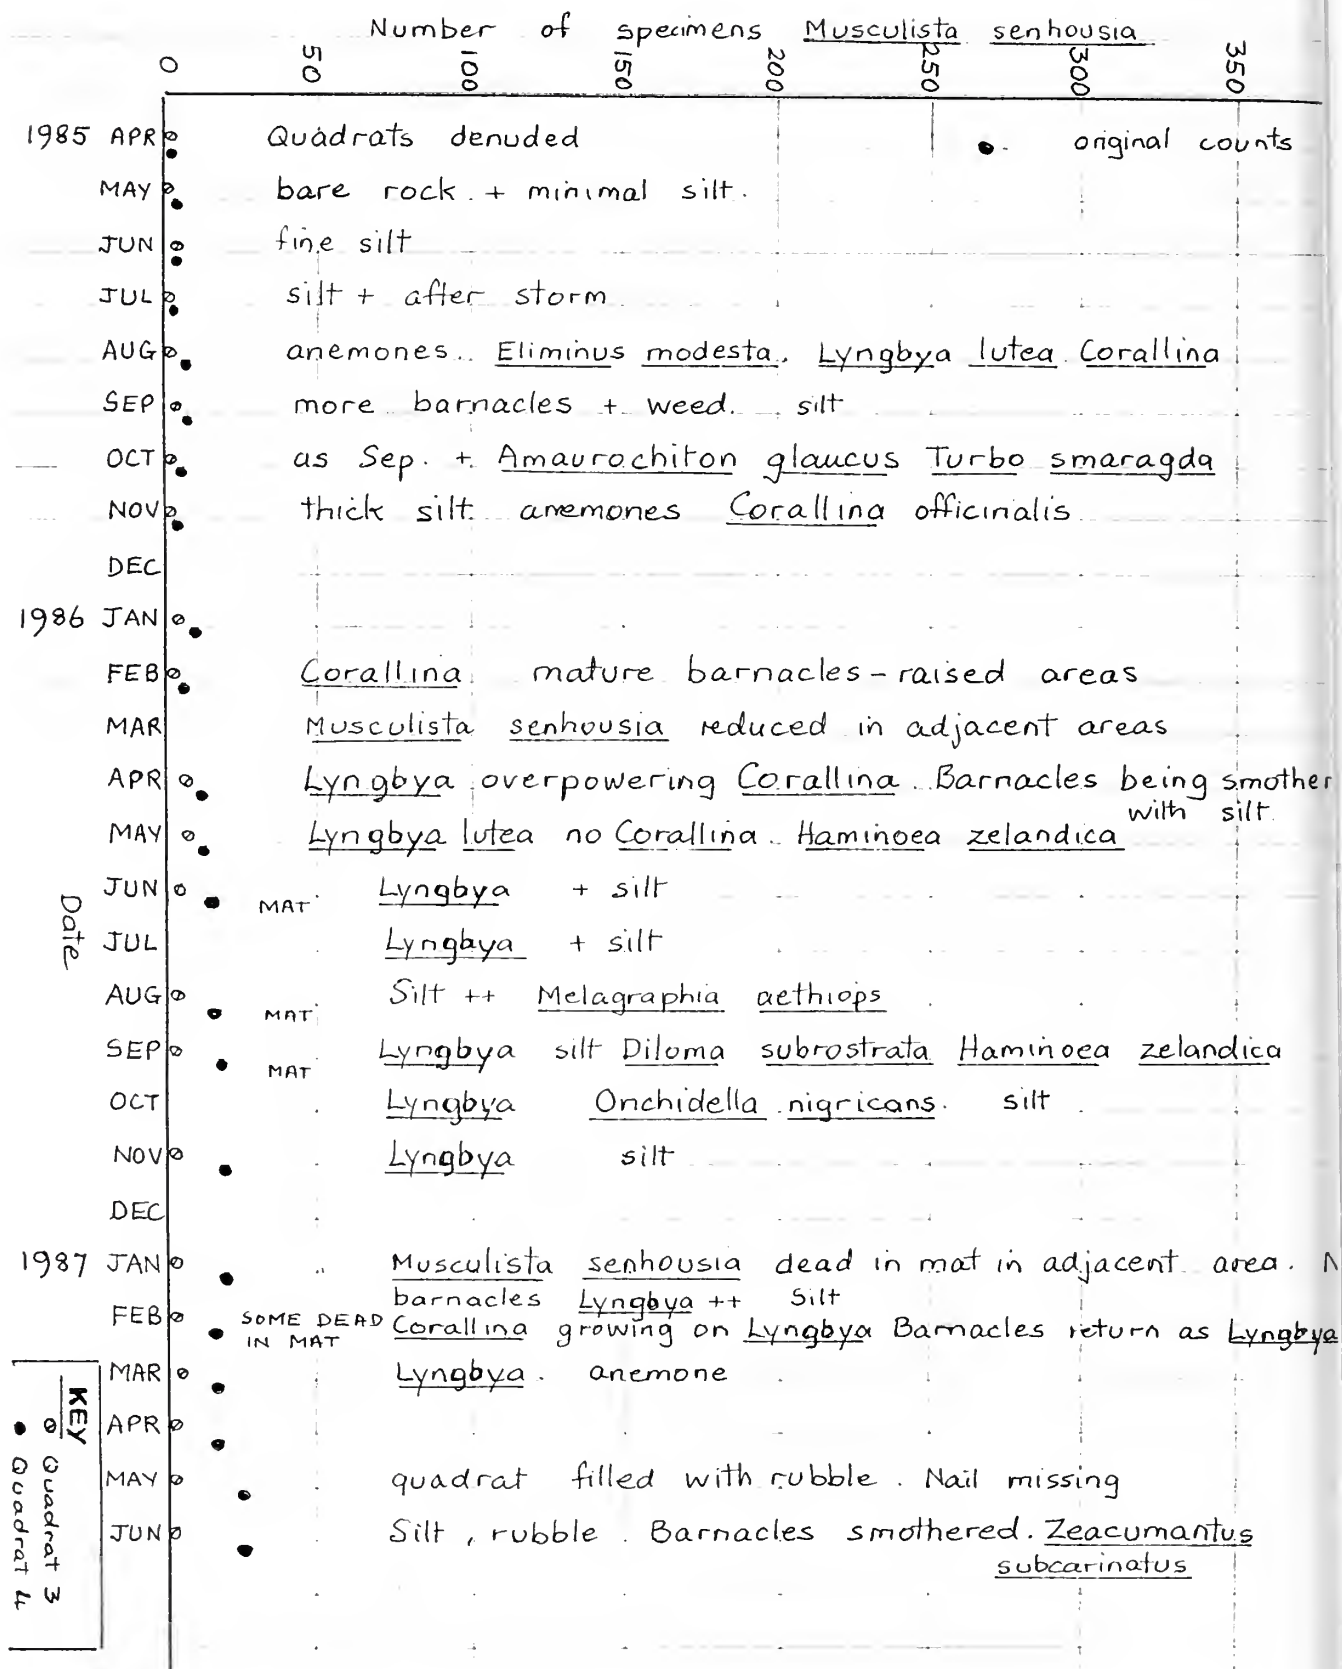 Number of specimens Musculista senhousia
0 50 100 150 200 250 300 350
1985 APR Quadrats denuded original counts
MAY bare rock. + minimal silt.
JUN fine silt
JUL silt + after storm
AUG anemones. Eliminus modesta. Lyngbya lutea Corallina
SEP more barnacles + weed. silt
OCT as Sep. + Amaurochiton glaucus Turbo smaragda
NOV thick silt. anemones Corallina officinalis
DEC
1986 JAN
FEB Corallina mature barnacles - raised areas
MAR Musculista senhousia reduced in adjacent areas
APR Lyngbya overpowering Corallina. Barnacles being smother
with silt.
MAY Lyngbya lutea no Corallina. Haminoea zelandica
JUN MAT Lyngbya + silt
JUL Lyngbya + silt
AUG MAT Silt ++ Melagraphia aethiops
SEP MAT Lyngbya silt Diloma subrostrata Haminoea zelandica
OCT Lyngbya Onchidella nigricans. silt
NOV Lyngbya silt
DEC
1987 JAN " Musculista senhousia dead in mat in adjacent area. N
barnacles Lyngbya ++ Silt
FEB SOME DEAD IN MAT Corallina growing on Lyngbya Barnacles return as Lyngbya
MAR Lyngbya. anemone
APR
MAY quadrat filled with rubble. Nail missing
JUN Silt, rubble. Barnacles smothered. Zeacumantus
subcarinatus
Date
KEY
Quadrat 3
Quadrat 4